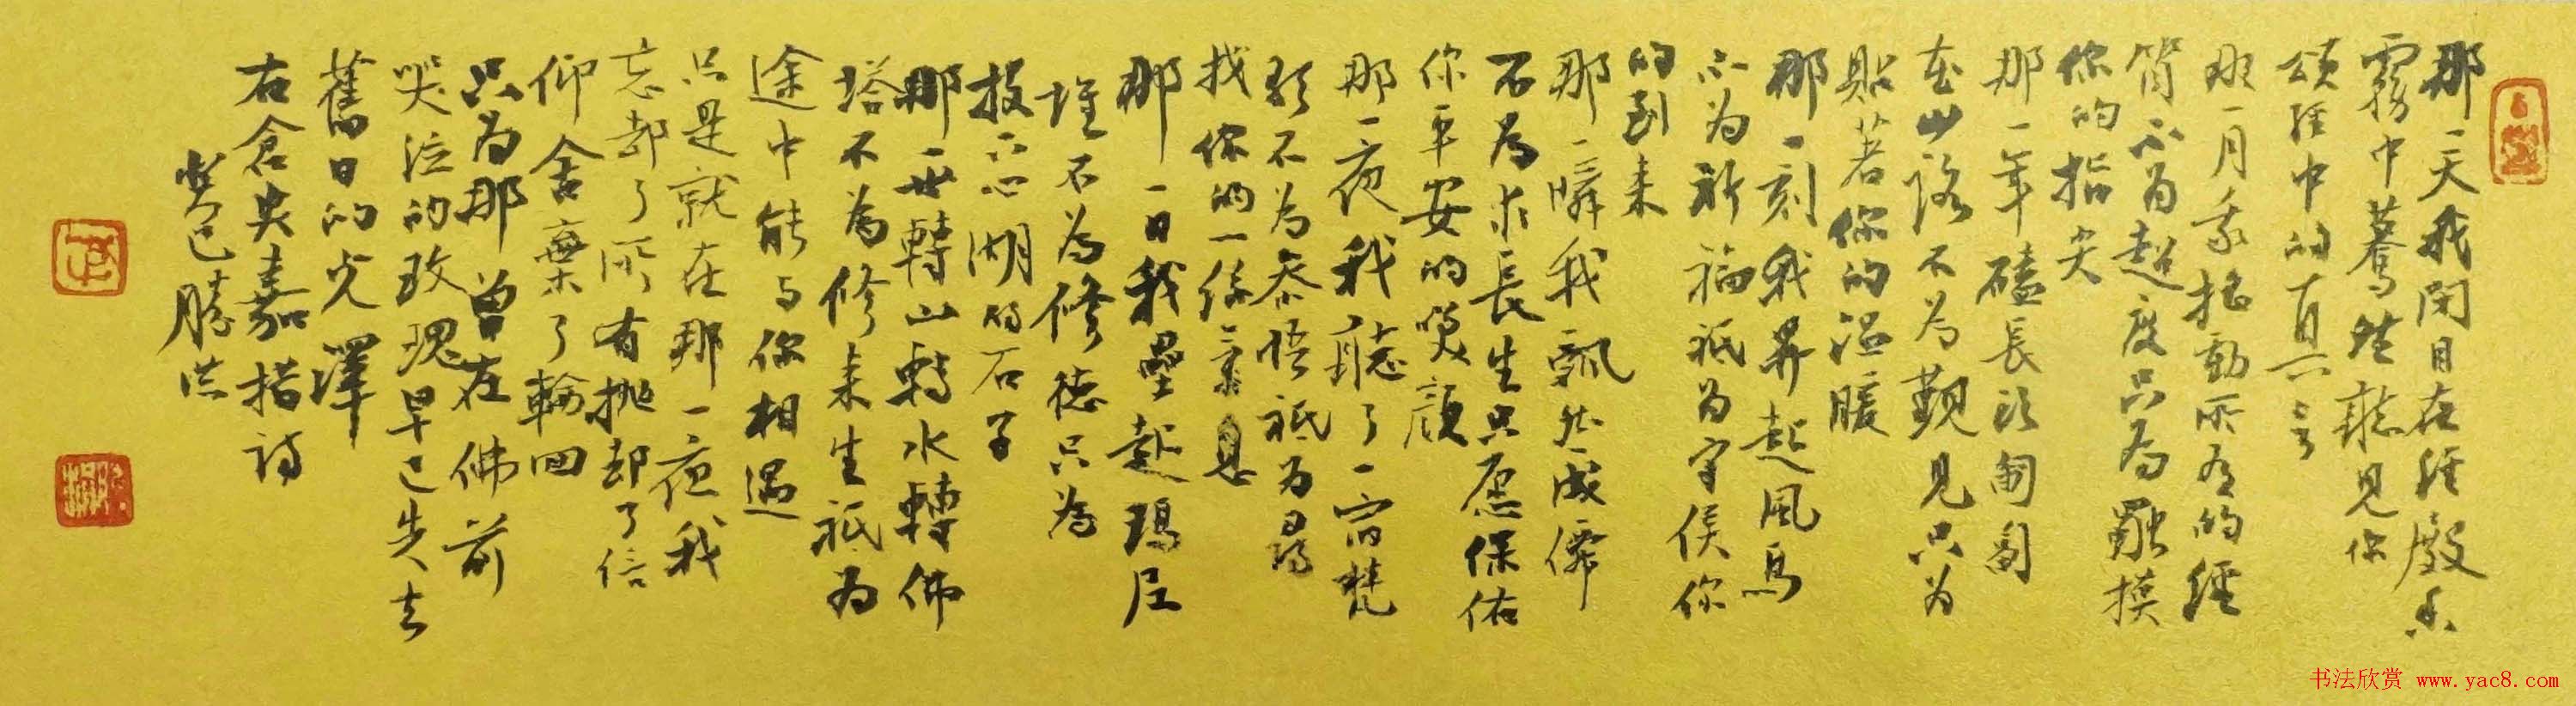 那一天我闭目在经殿香
霧中蓦然聼見你
頌经中的真言
那一月我摇動所有的經
筒不为超度只为觸摸
你的指尖
那一年磕長头匍匐
在山路不为觐見只为
貼着你的温暖
那一刻我昇起風馬
不为祈福祇为守候你
的到来
那一瞬我飘然成僊
不为求長生只愿保佑
你平安的笑顏
那一夜我聽了一宿梵
歌不为参悟祇为尋
找你的一絲氣息
那一日我壘起瑪尼
堆不为修德只为
投下心湖的石子
那一世轉山轉水轉佛
塔不为修来生祇为
途中能与你相遇
只是就在那一夜我
忘却了所有抛却了信
仰舍棄了輪回
只为那曾在佛前
哭泣的玫瑰早已失去
舊日的光澤
右倉央嘉措詩
癸巳勝洪
书法欣赏 www.yac8.com